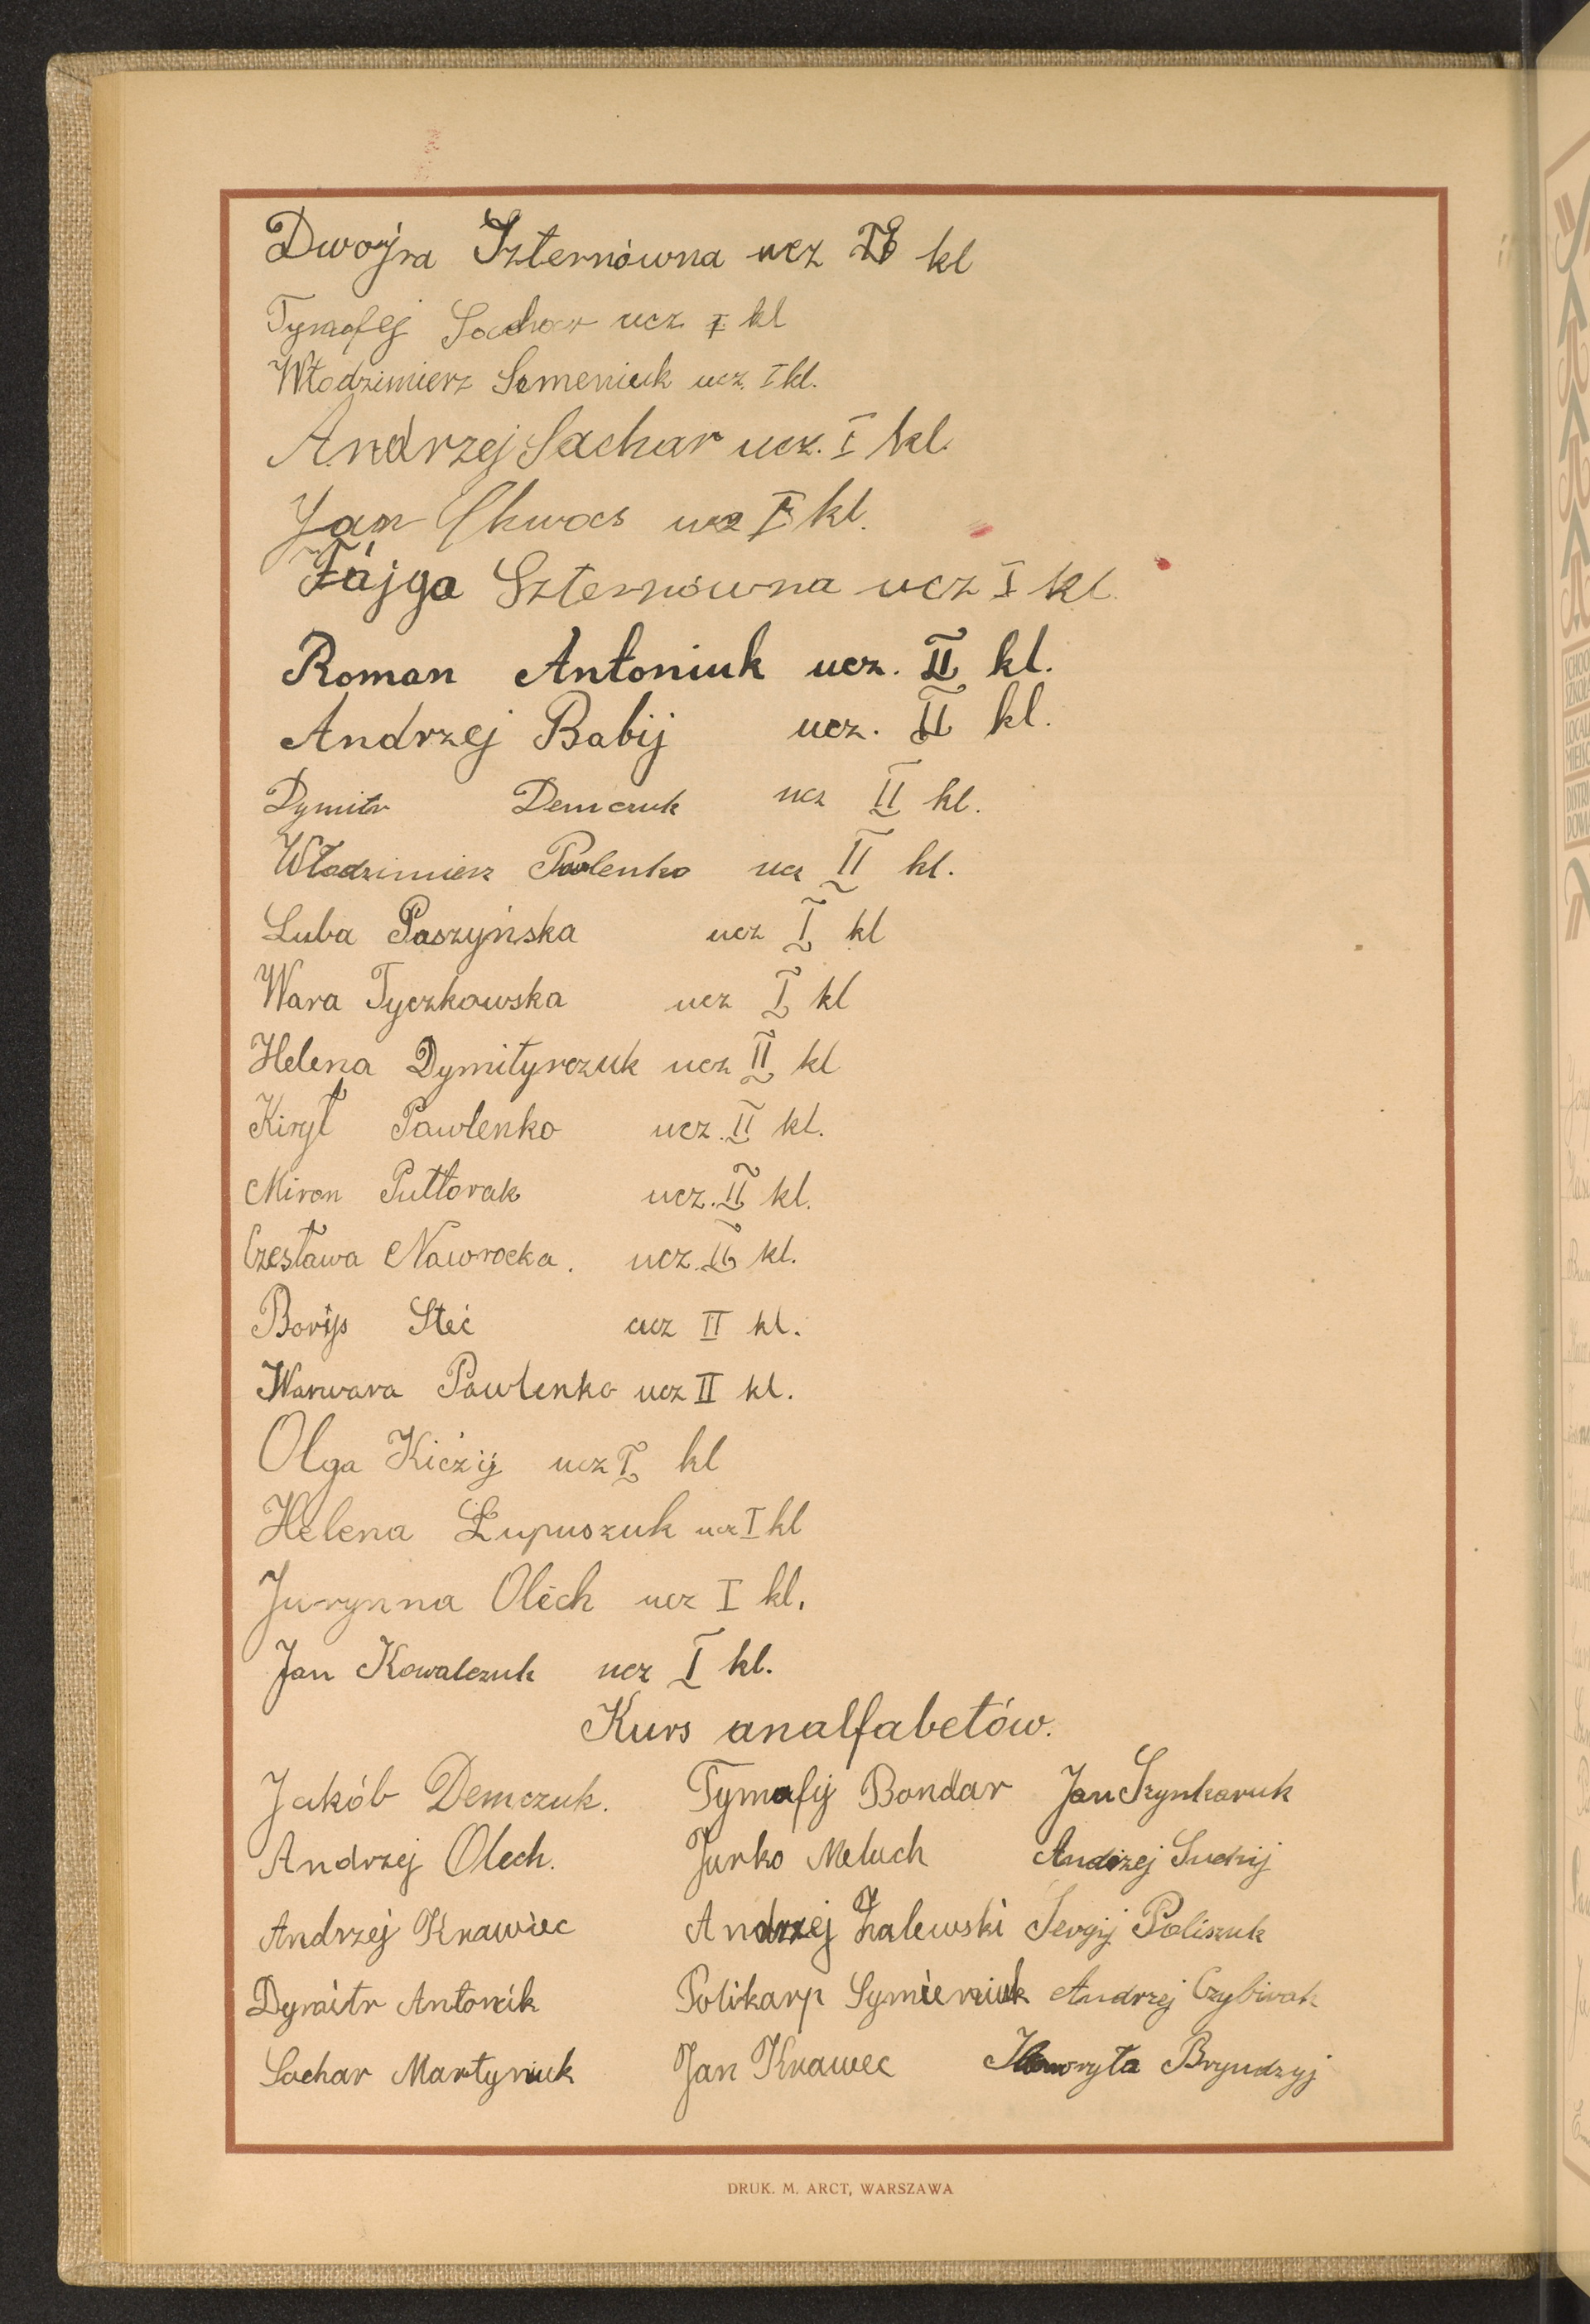 Dwojra Szternówna ucz II kl
Tymofej Sachar ucz I kl
Włodzimierz Semeniuk ucz. I kl.
Andrzej Sachar ucz. I kl.
Jan Chwocs ucz I kl.
Fajga Szternówna ucz I kl.
Roman Antoniuk ucz. II kl.
Andrzej Babij ucz. II kl.
Dymitr Demczuk ucz II kl.
Włodzimierz Pawlenko ucz II kl.
Luba Paszyńska ucz I kl
Wara Tyczkowska ucz I kl
Helena Dymityrczuk ucz II kl
Kirył Pawlenko ucz. II kl.
Miron Pułtorak ucz. II kl.
Czesława Nawrocka. ucz. II kl.
Borys Steć ucz II kl.
Warwara Pawlenko ucz II kl.
Olga Kiczij ucz I kl
Helena Łupuszuk ucz I kl
Jurynna Olech ucz I kl.
Jan Kowalczuk ucz I kl.
Kurs analfabetów.
Jakób Demczuk. Tymofij Bondar Jan Szynkaruk
Andrzej Olech. Jurko Meluch Andrzej Suchij
Andrzej Krawiec Andrzej Zalewski Sergij Poliszuk
Dymitr Antonik Polikarp Symieniuk Andrzej Czybirak
Sachar Martyniuk Jan Krawec Hawryła Bryndzyj
DRUK. M. ARCT, WARSZAWA